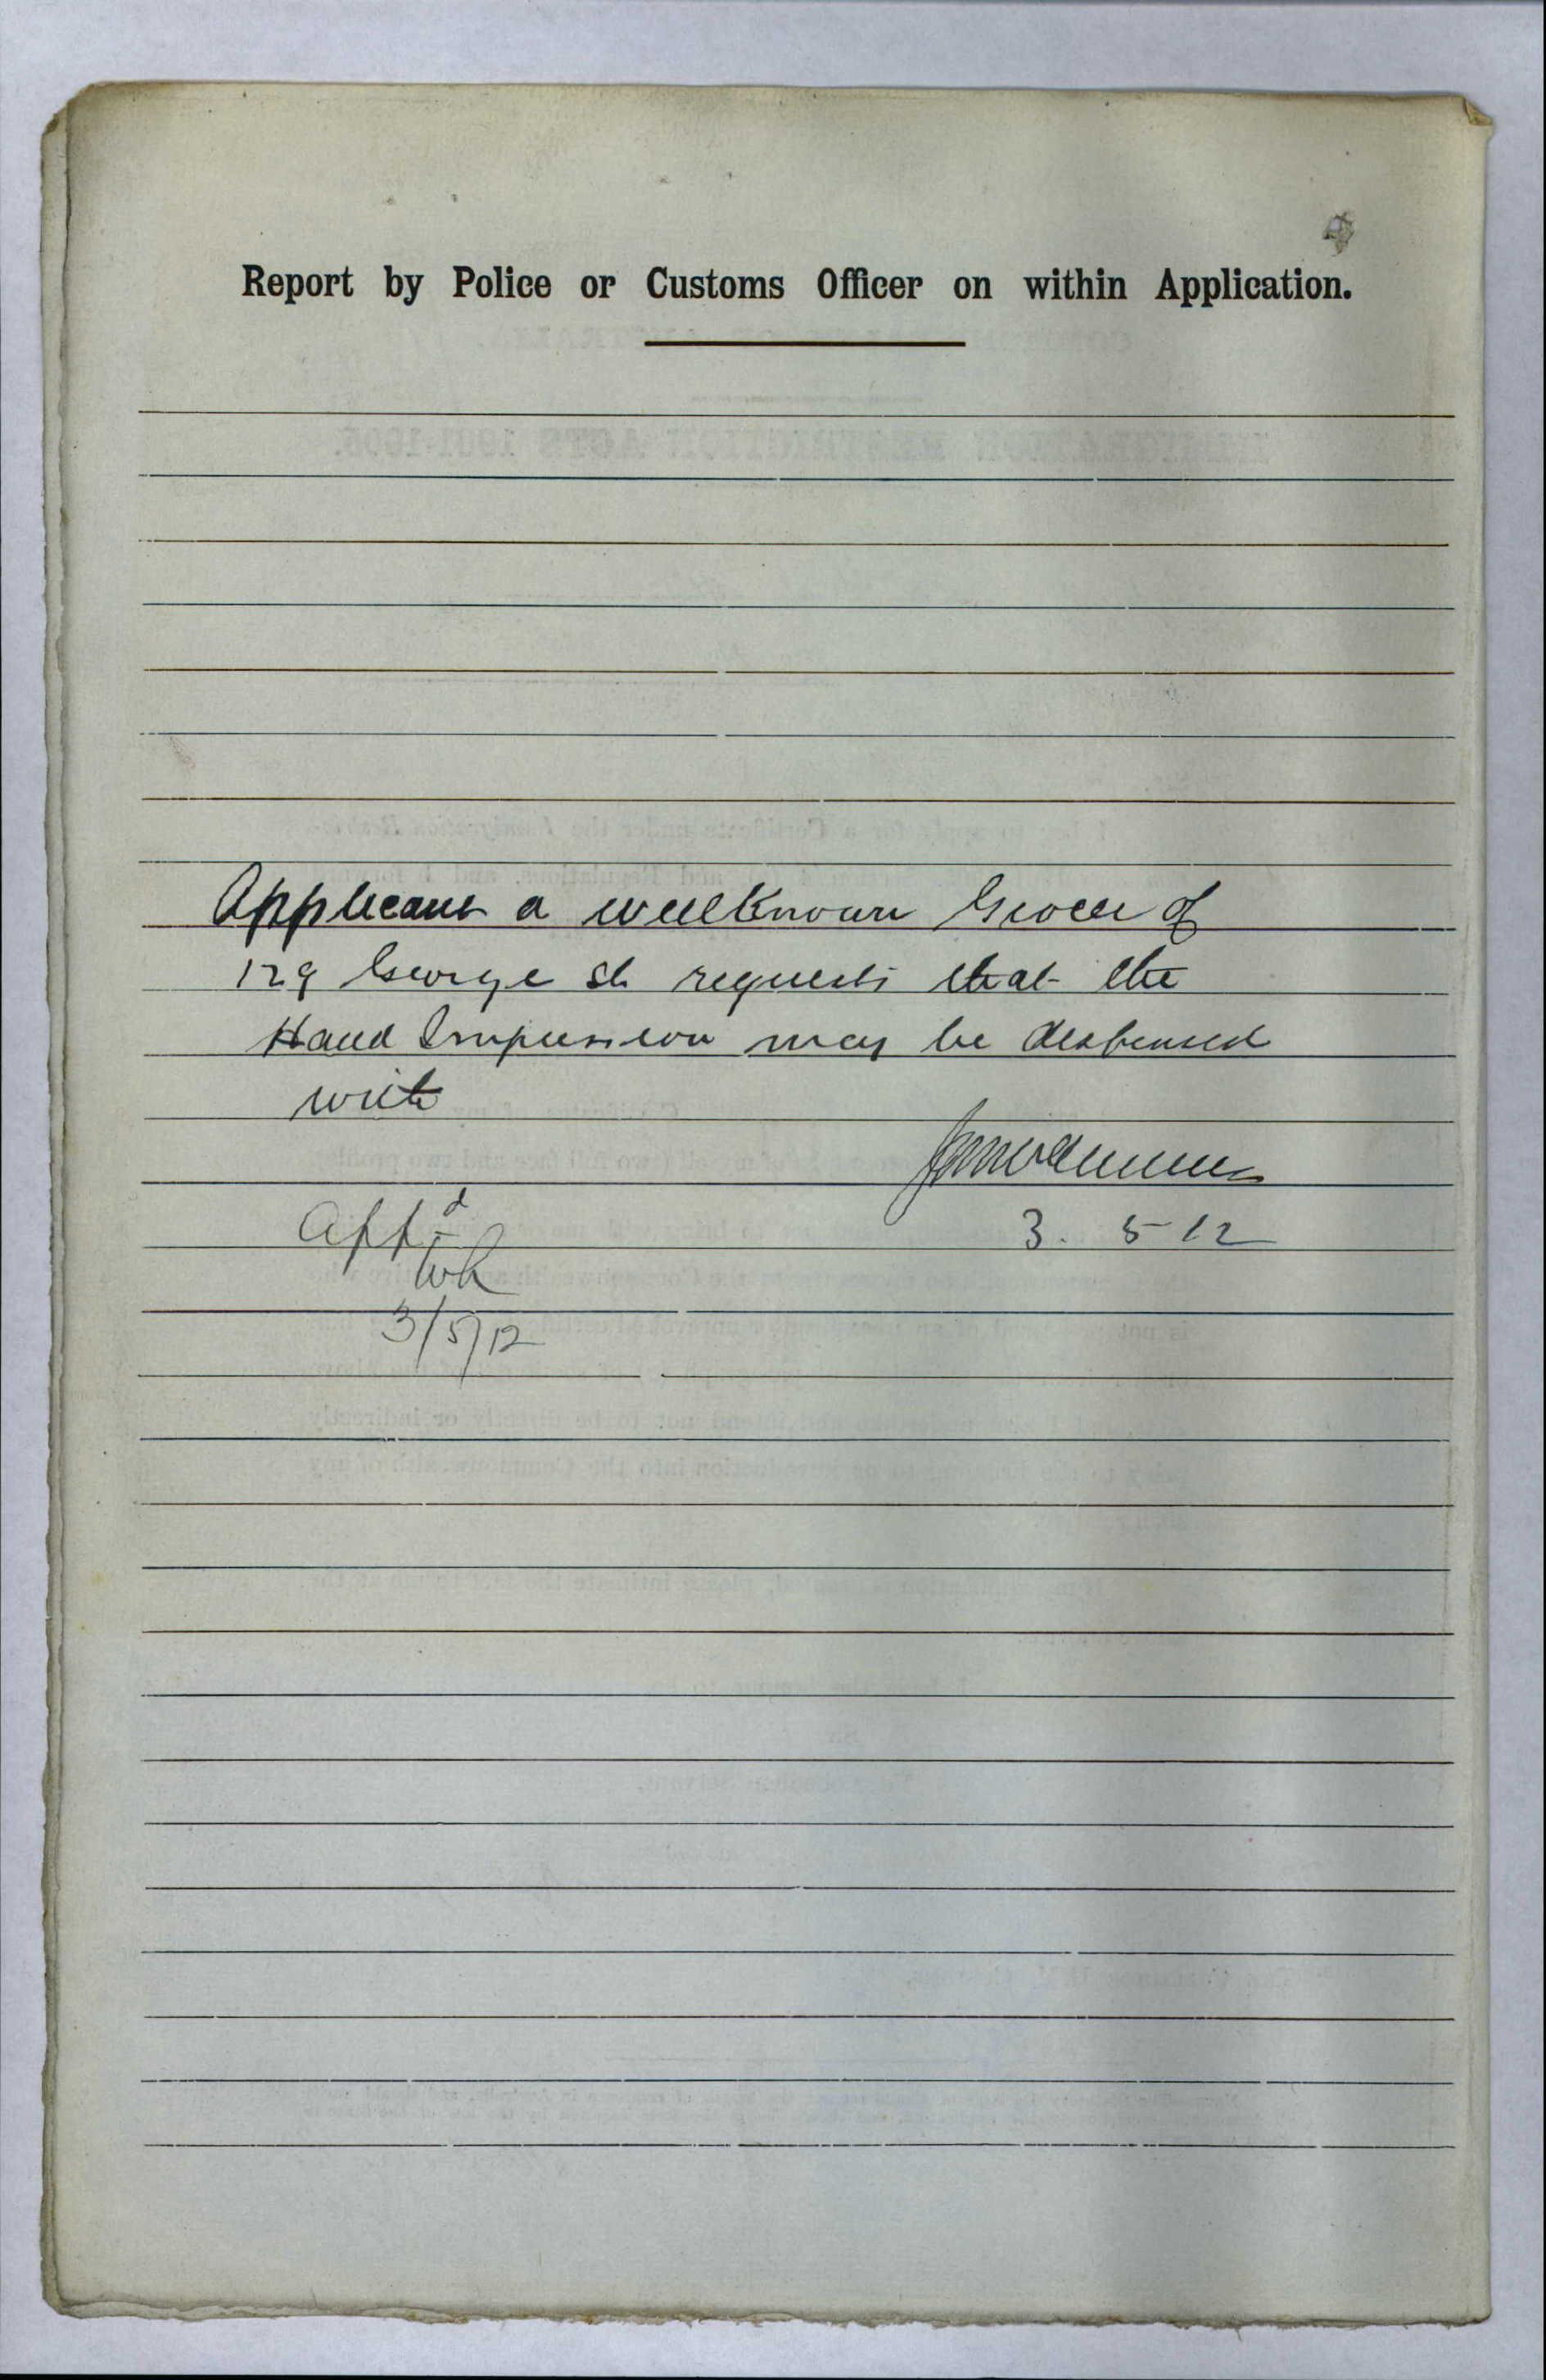 Report by Police or Customs Officer on within Application.
Applicant a wellknown Grocer of
129 George St requests that the
Hand Impression may be dispensed
with
3. 5 12
Appd
WH
3/5/12